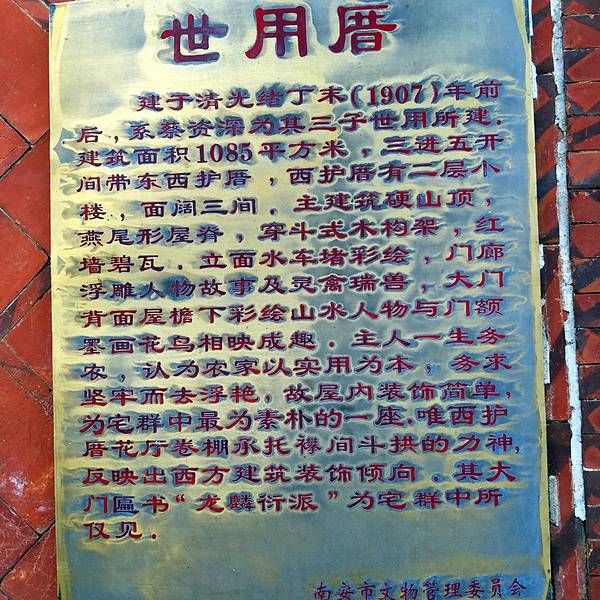 世用厝
建于清光绪丁未(1907)年前
后，系蔡资深为其三子世用所建.
建筑面积1085平方米，三进五开
间带东西护厝，西护厝有二层个
楼，面阔三间．主建筑硬山顶，
燕尾形屋脊，穿斗式木构架，红
墙碧瓦．立面水车堵彩绘，门廊
浮雕人物故事及灵禽瑞兽，大门
背面屋檐下彩绘山水人物与门额
墨画花鸟相映成趣．主人一生务
农，认为农家以实用为本，务求
坚牢而去浮艳，故屋内装饰简单，
为宅群中最为素朴的一座.唯西护
厝花厅卷棚承托襻间斗拱的力神，
反映出西方建筑装饰倾向．其大
门匾书“龙麟衍派”为宅群中所
仅见．
南安市文物管理委员会